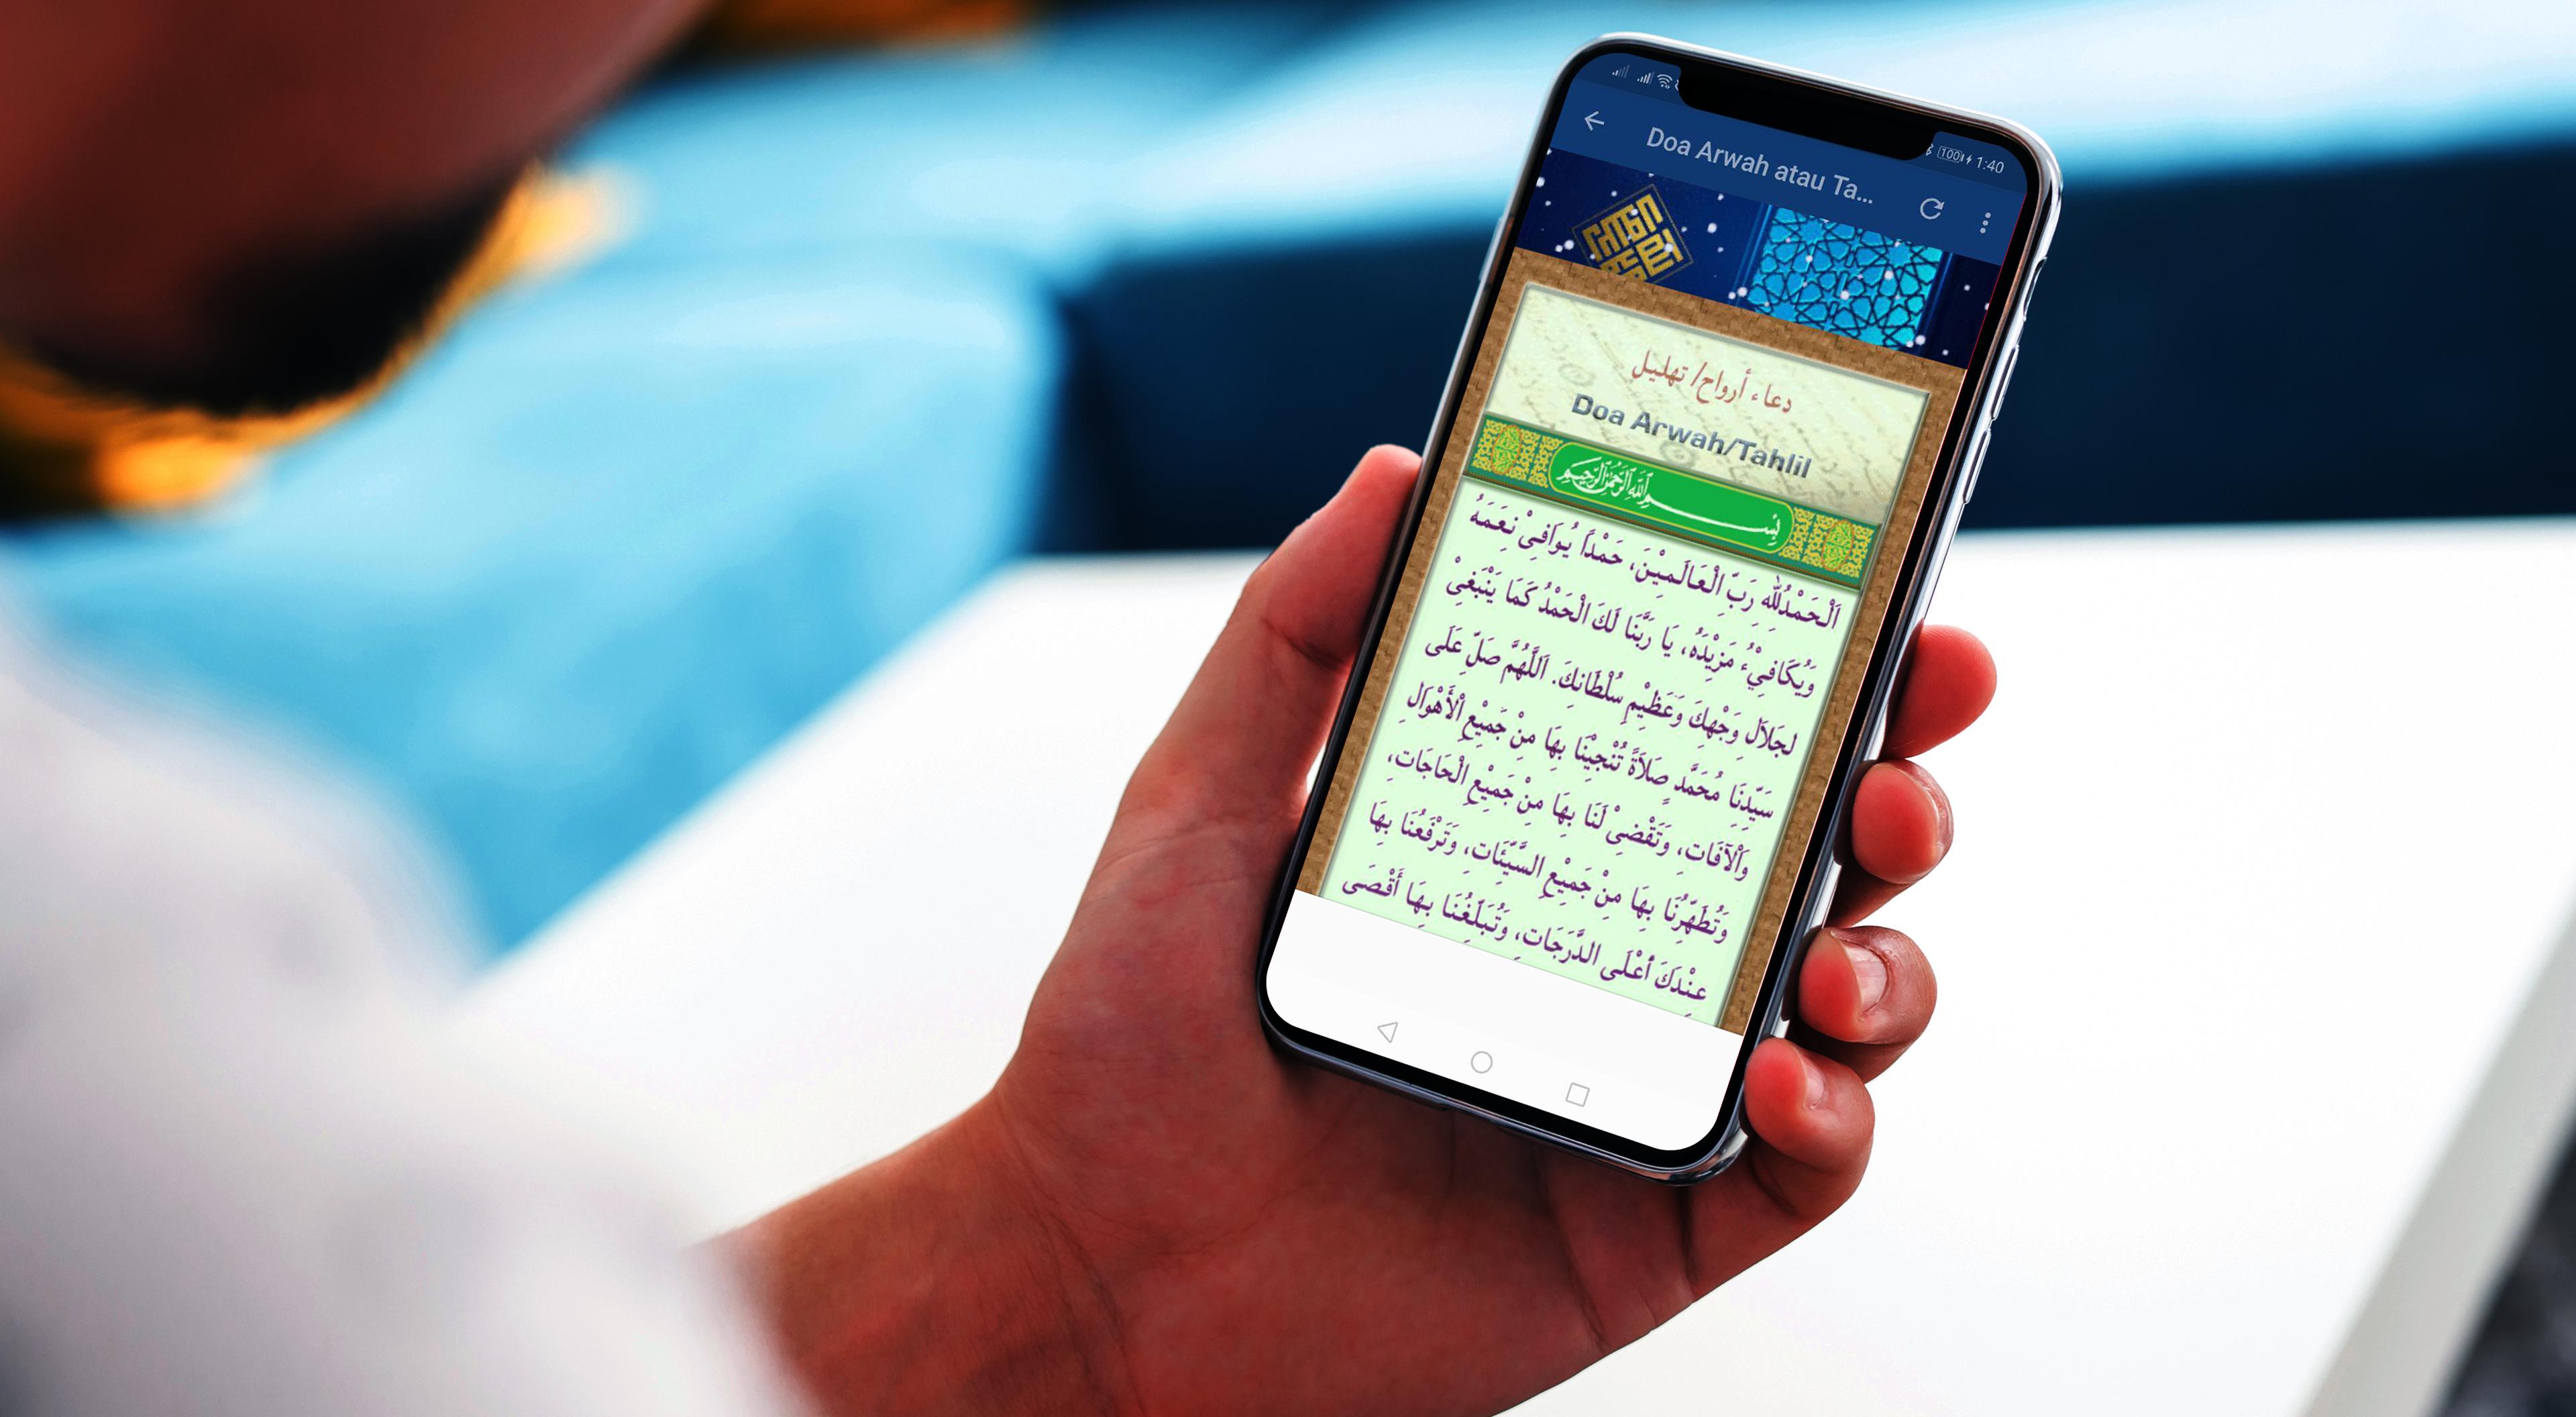 100 1:40
Doa Arwah atau Ta...
دعاء أرواح/ تهليل
Doa Arwah/Tahlil
بِسْمِ اللهِ الرَّحْمٰنِ الرَّحِيْمِ
اَلْحَمْدُلِلّٰهِ رَبِّ الْعَالَمِيْنَ، حَمْدًا يُوَافِيْ نِعَمَهُ
وَيُكَافِيْءُ مَزِيْدَهُ، يَا رَبَّنَا لَكَ الْحَمْدُ كَمَا يَنْبَغِيْ
لِجَلَالِ وَجْهِكَ وَعَظِيْمِ سُلْطَانِكَ. اَللّٰهُمَّ صَلِّ عَلَى
سَيِّدِنَا مُحَمَّدٍ صَلَاةً تُنْجِيْنَا بِهَا مِنْ جَمِيْعِ الْأَهْوَالِ
وَالْآفَاتِ، وَتَقْضِيْ لَنَا بِهَا مِنْ جَمِيْعِ الْحَاجَاتِ،
وَتُطَهِّرُنَا بِهَا مِنْ جَمِيْعِ السَّيِّئَاتِ، وَتَرْفَعُنَا بِهَا
عِنْدَكَ أَعْلَى الدَّرَجَاتِ، وَتُبَلِّغُنَا بِهَا أَقْصَى